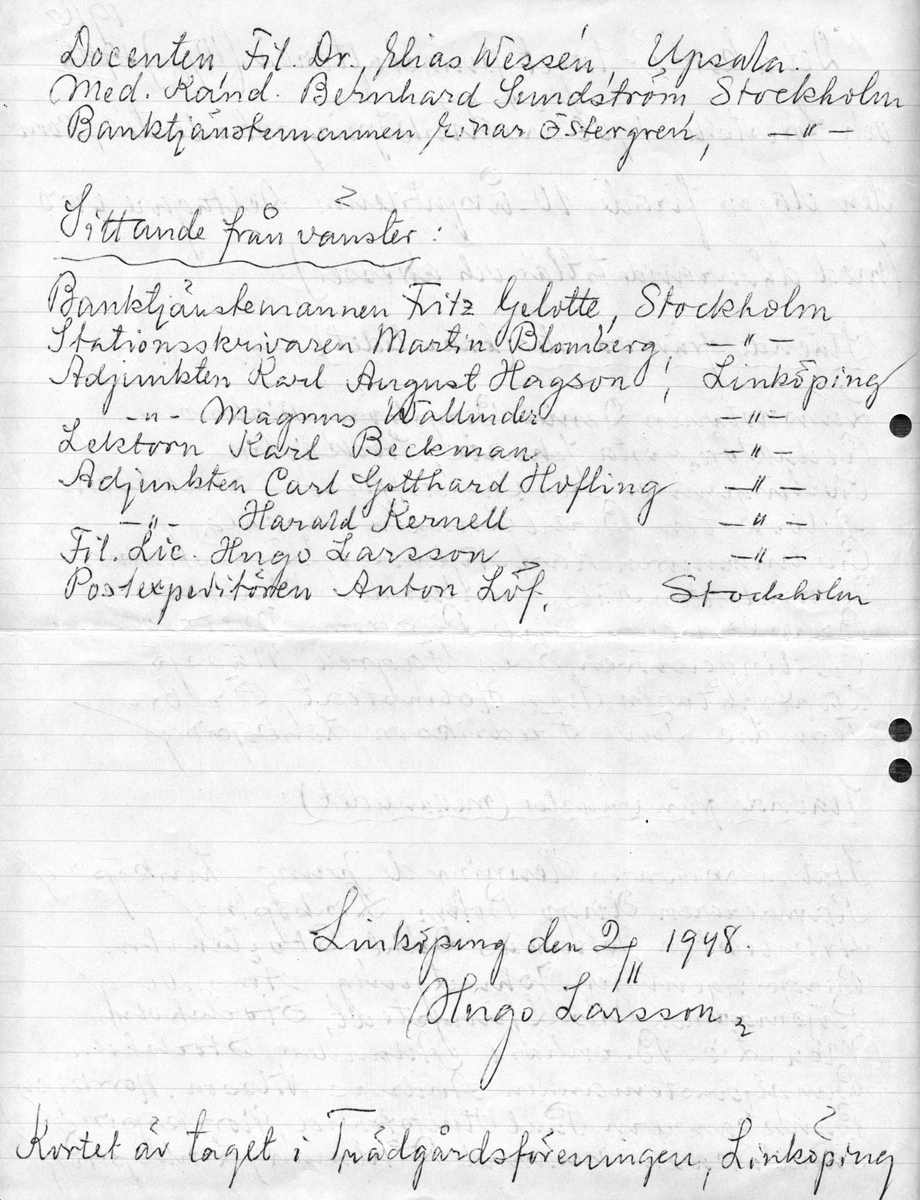 Docenten Fil. Dr. Elias Wessén, Upsala.
Med. Kand. Bernhard Sundström Stockholm
Banktjänstemannen Einar Östergren, —"—
Sittande från vänster:
Banktjänstemannen Fritz Gelotte, Stockholm
Stationsskrivaren Martin Blomberg, —"—
Adjunkten Karl August Hagson, Linköping
-"- Magnus Wallinder —"—
Lektorn Karl Beckman —"—
Adjunkten Carl Gotthard Höfling —"—
—"— Harald Kernell —"—
Fil. Lic. Hugo Larsson —"—
Postexpeditören Anton Löf. Stockholm
Linköping den 2/11 1948.
Hugo Larsson
Kortet är taget i Trädgårdsföreningen, Linköping